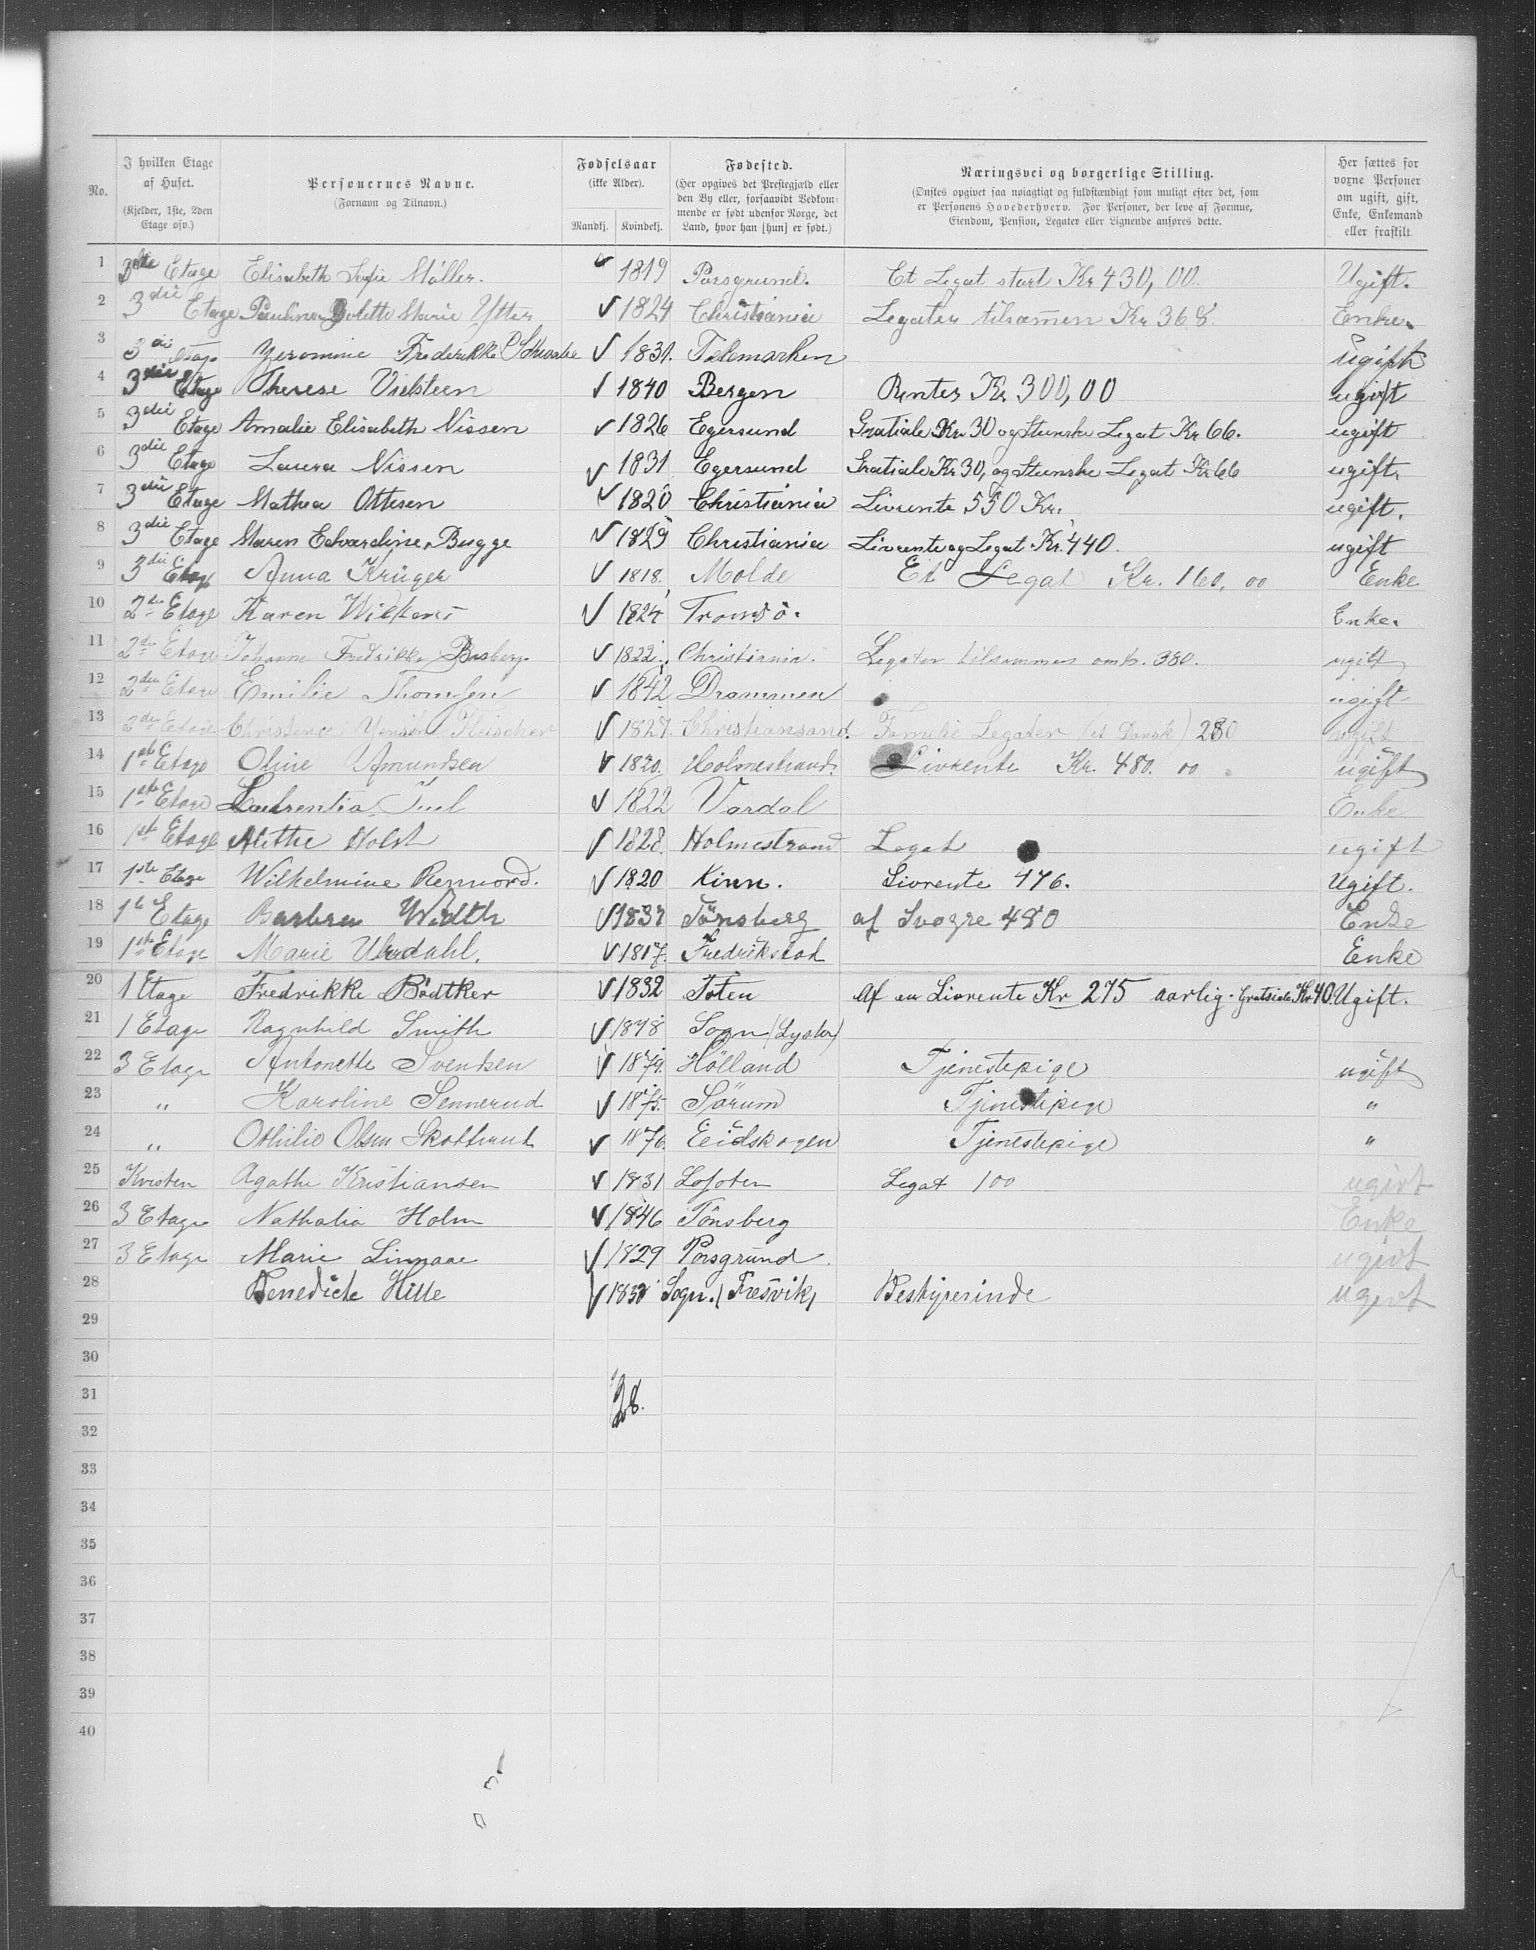 No.
I hvilken Etage af Huset. (Kjelder, 1ste, 2den Etage osv.)
Personernes Navne. (Fornavn og Tilnavn.)
Fødselsaar (ikke Alder). Mandkj. Kvindekj.
Fødested. (Her opgives det Prestegjæld eller den By eller, forsaavidt Vedkommende er født udenfor Norge, det Land, hvor han [hun] er født.)
Næringsvei og borgerlige Stilling. (Ønskes opgivet saa nøiagtigt og fuldstændigt som muligt efter det, som er Personens Hovederhverv. For Personer, der leve af Formue, Eiendom, Pension, Legater eller Lignende anføres dette.
Her sættes for voxne Personer om ugift, gift, Enke, Enkemand eller fraskilt.
1 3die Etage Elisabeth Sofie Møller. 1819 Porsgrund. Et Legat stort Kr 430,00. Ugift.
2 3die Etage Pauline Bolette Marie Ytter 1824 Christiania Legater tilsamen Kr. 368. Enke.
3 3die Etage Yeromine Frederikke Schwabe 1831. Telemarken ugift
4 3die Etage Therese Vielsteen 1840 Bergen Renter Kr 300,00 ugift
5 3die Etage Amalie Elisabeth Nissen 1826 Egersund Gratiale Kr. 30 og Stenske Legat Kr 66. ugift
6 3die Etage Laura Nissen 1831 Egersund Gratiale Kr 30, og Stenske Legat Kr 66 ugift.
7 3die Etage Mathea Ottesen 1820 Christiania Livrente 550 Kr. ugift.
8 3die Etage Maren Edvardine Bugge 1829 Christiania Livrente og Legat Kr. 440. ugift
9 3die Etage Anna Krüger 1818. Molde Et Legat Kr. 160, 00 Enke
10 2den Etage Karen Wilkens 1824 Tromsö. Enke.
11 2den Etage Johanne Fredrikke Bosberg. 1822. Christiania. Legater tilsammen omtr. 380. ugift
12 2den Etage Emilie Thomsen 1842 Drammen ugift
13 2den Etage Christence Jensine Fleischer 1827. Christiansand. Familie Legater (et Dansk) 280 ugift
14 1ste Etage Oline Amundsen 1820. Holmestrand. Livrente Kr. 480. 00 ugift
15 1ste Etage Laurentia Juel 1822 Vardal Enke
16 1ste Etage Alethe Holst 1828. Holmestrand Legat ugift
17 1ste Etage Wilhelmine Rennord. 1820 Kinn. Livrente 476. Ugift.
18 1ste Etage Barbra Width 1837 Tönsberg af Svogre 480 Enke
19 1ste Etage Marie Urdahl. 1817. Fredrikstad Enke
20 1 Etage Fredrikke Bödtker 1832 Toten Af en Livrente Kr 275 aarlig. Gratiale Kr 40. Ugift.
21 1 Etage Ragnhild Smith 1878 Sogn (Lyster)
22 3 Etage Antonette Svendsen 1879. Hölland Tjenestepige ugift
23 " Karoline Sennerud 1875. Sörum Tjenestepige "
24 " Othilie Olsen Skotterud 1876. Eidskogen Tjenestepige "
25 Kvisten Agathe Kristiansen 1831 Lofoten Legat 100 ugivt
26 3 Etage Nathalia Holm 1846 Tönsberg Enke
27 3 Etage Marie Linnaae 1829 Porsgrund. ugivt
28 Benedicte Hille 1850 Sogn. (Fresvik) Bestyrerinde ugivt
29
30
31 28.
32
33
34
35
36
37
38
39
40